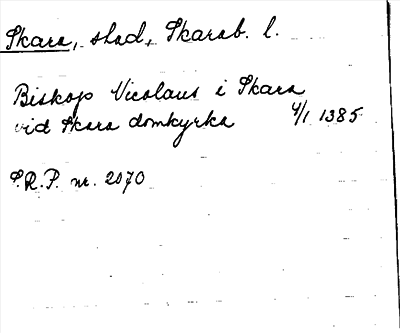 Skara, stad, Skarab. l.
Biskop Nicolaus i Skara
vid Skara domkyrka 4/1 1385
S.R.P. nr. 2070